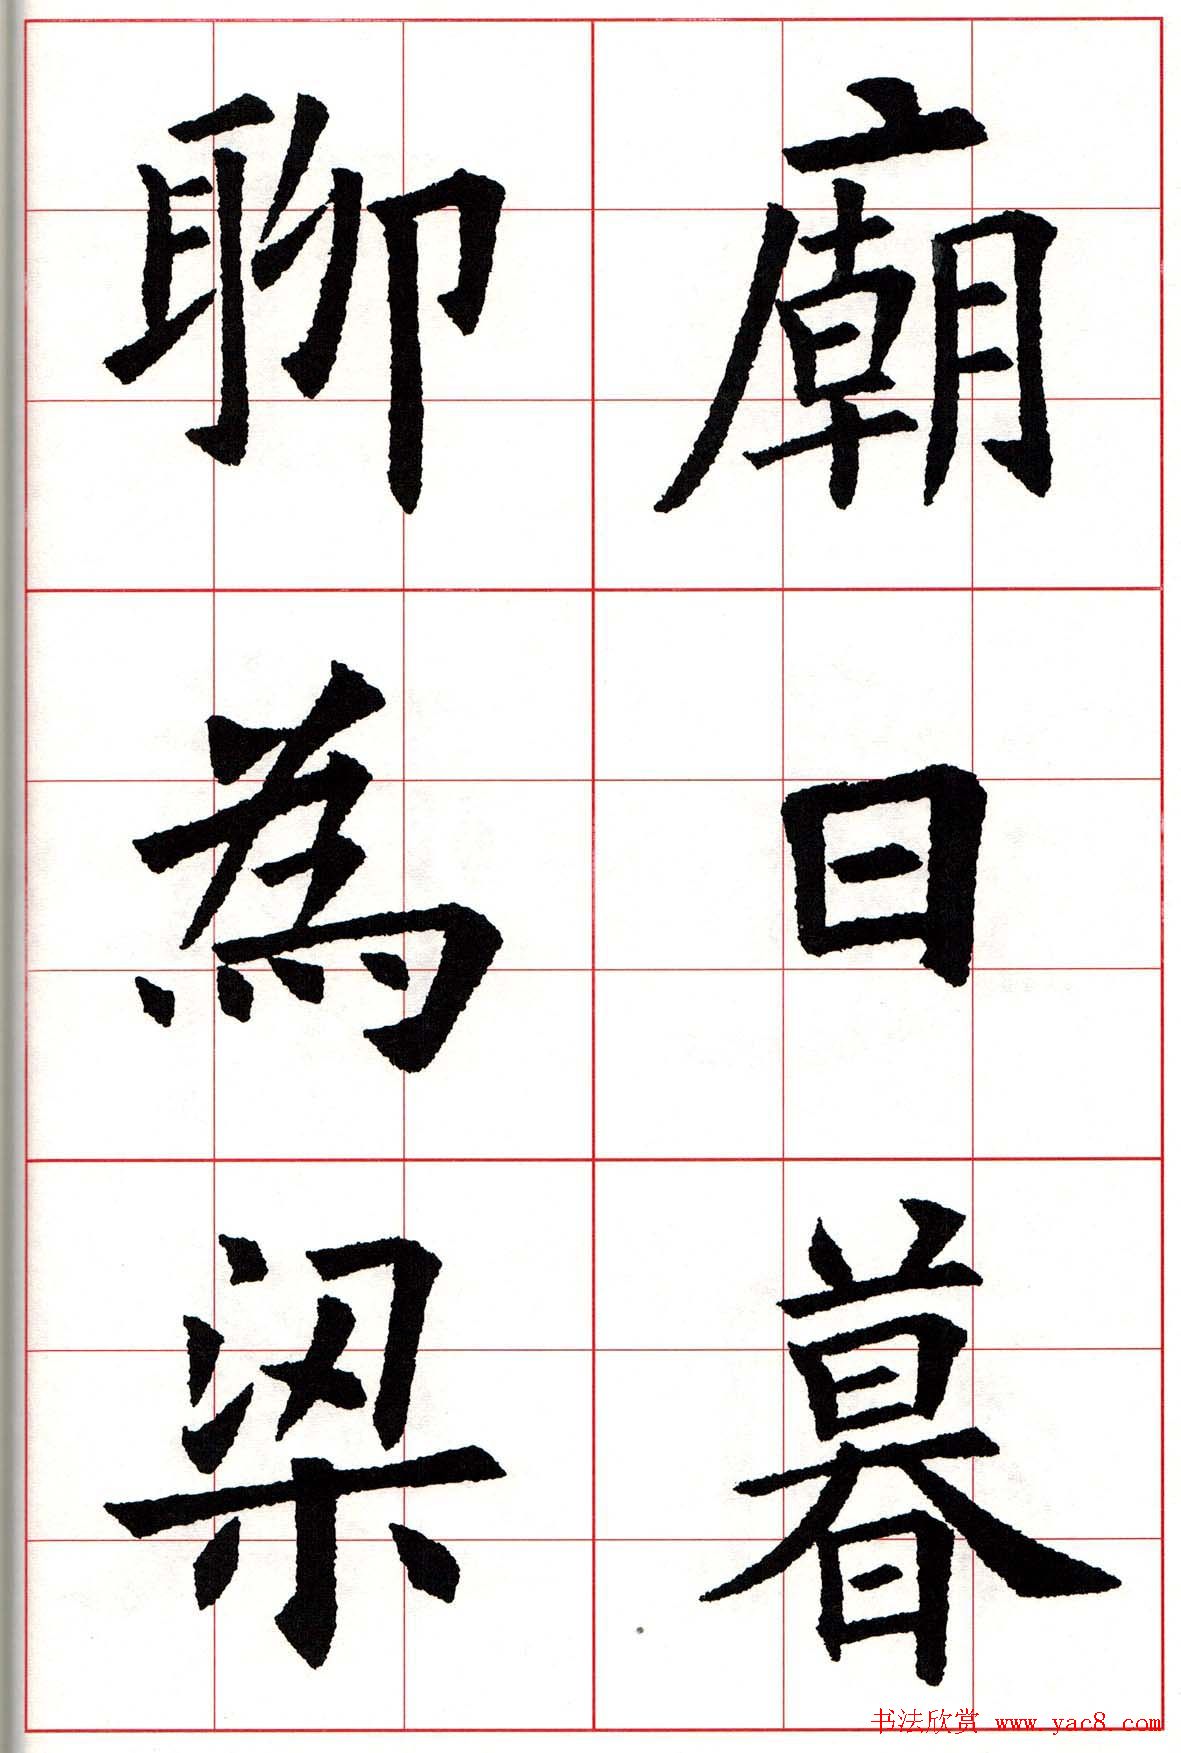 廟日暮
聊為梁
书法欣赏 www.yac8.com